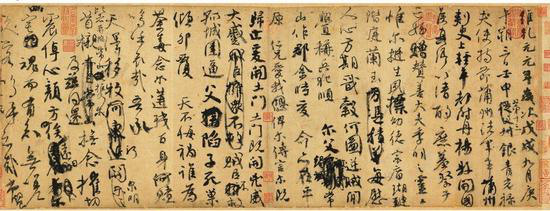 維乾元元年歲次戊戌九月庚
午朔三日壬申第十三叔銀青光祿
夫使持節蒲州諸軍事蒲州
刺史上輕車都尉丹楊縣開國
侯真卿以清酌庶羞祭于
亡姪贈贊善大夫季明之靈曰
惟爾挺生夙標幼德宗廟瑚璉
階庭蘭玉每慰
人心方期戩穀何圖逆賊間
釁稱兵犯順爾父竭誠
常山作郡余時受命亦在平
原仁兄愛我俾爾傳言爾既
歸止爰開土門土門既開凶威
大蹙賊臣不救
孤城圍逼父陷子死巢
傾卵覆天不悔禍誰為
荼毒念爾遘殘百身何贖
嗚呼哀哉吾承
天澤移牧河關泉明
比者再陷常山攜爾
首櫬及茲同還撫念摧切
震悼心顏方俟遠日
魂而有知無嗟
久客